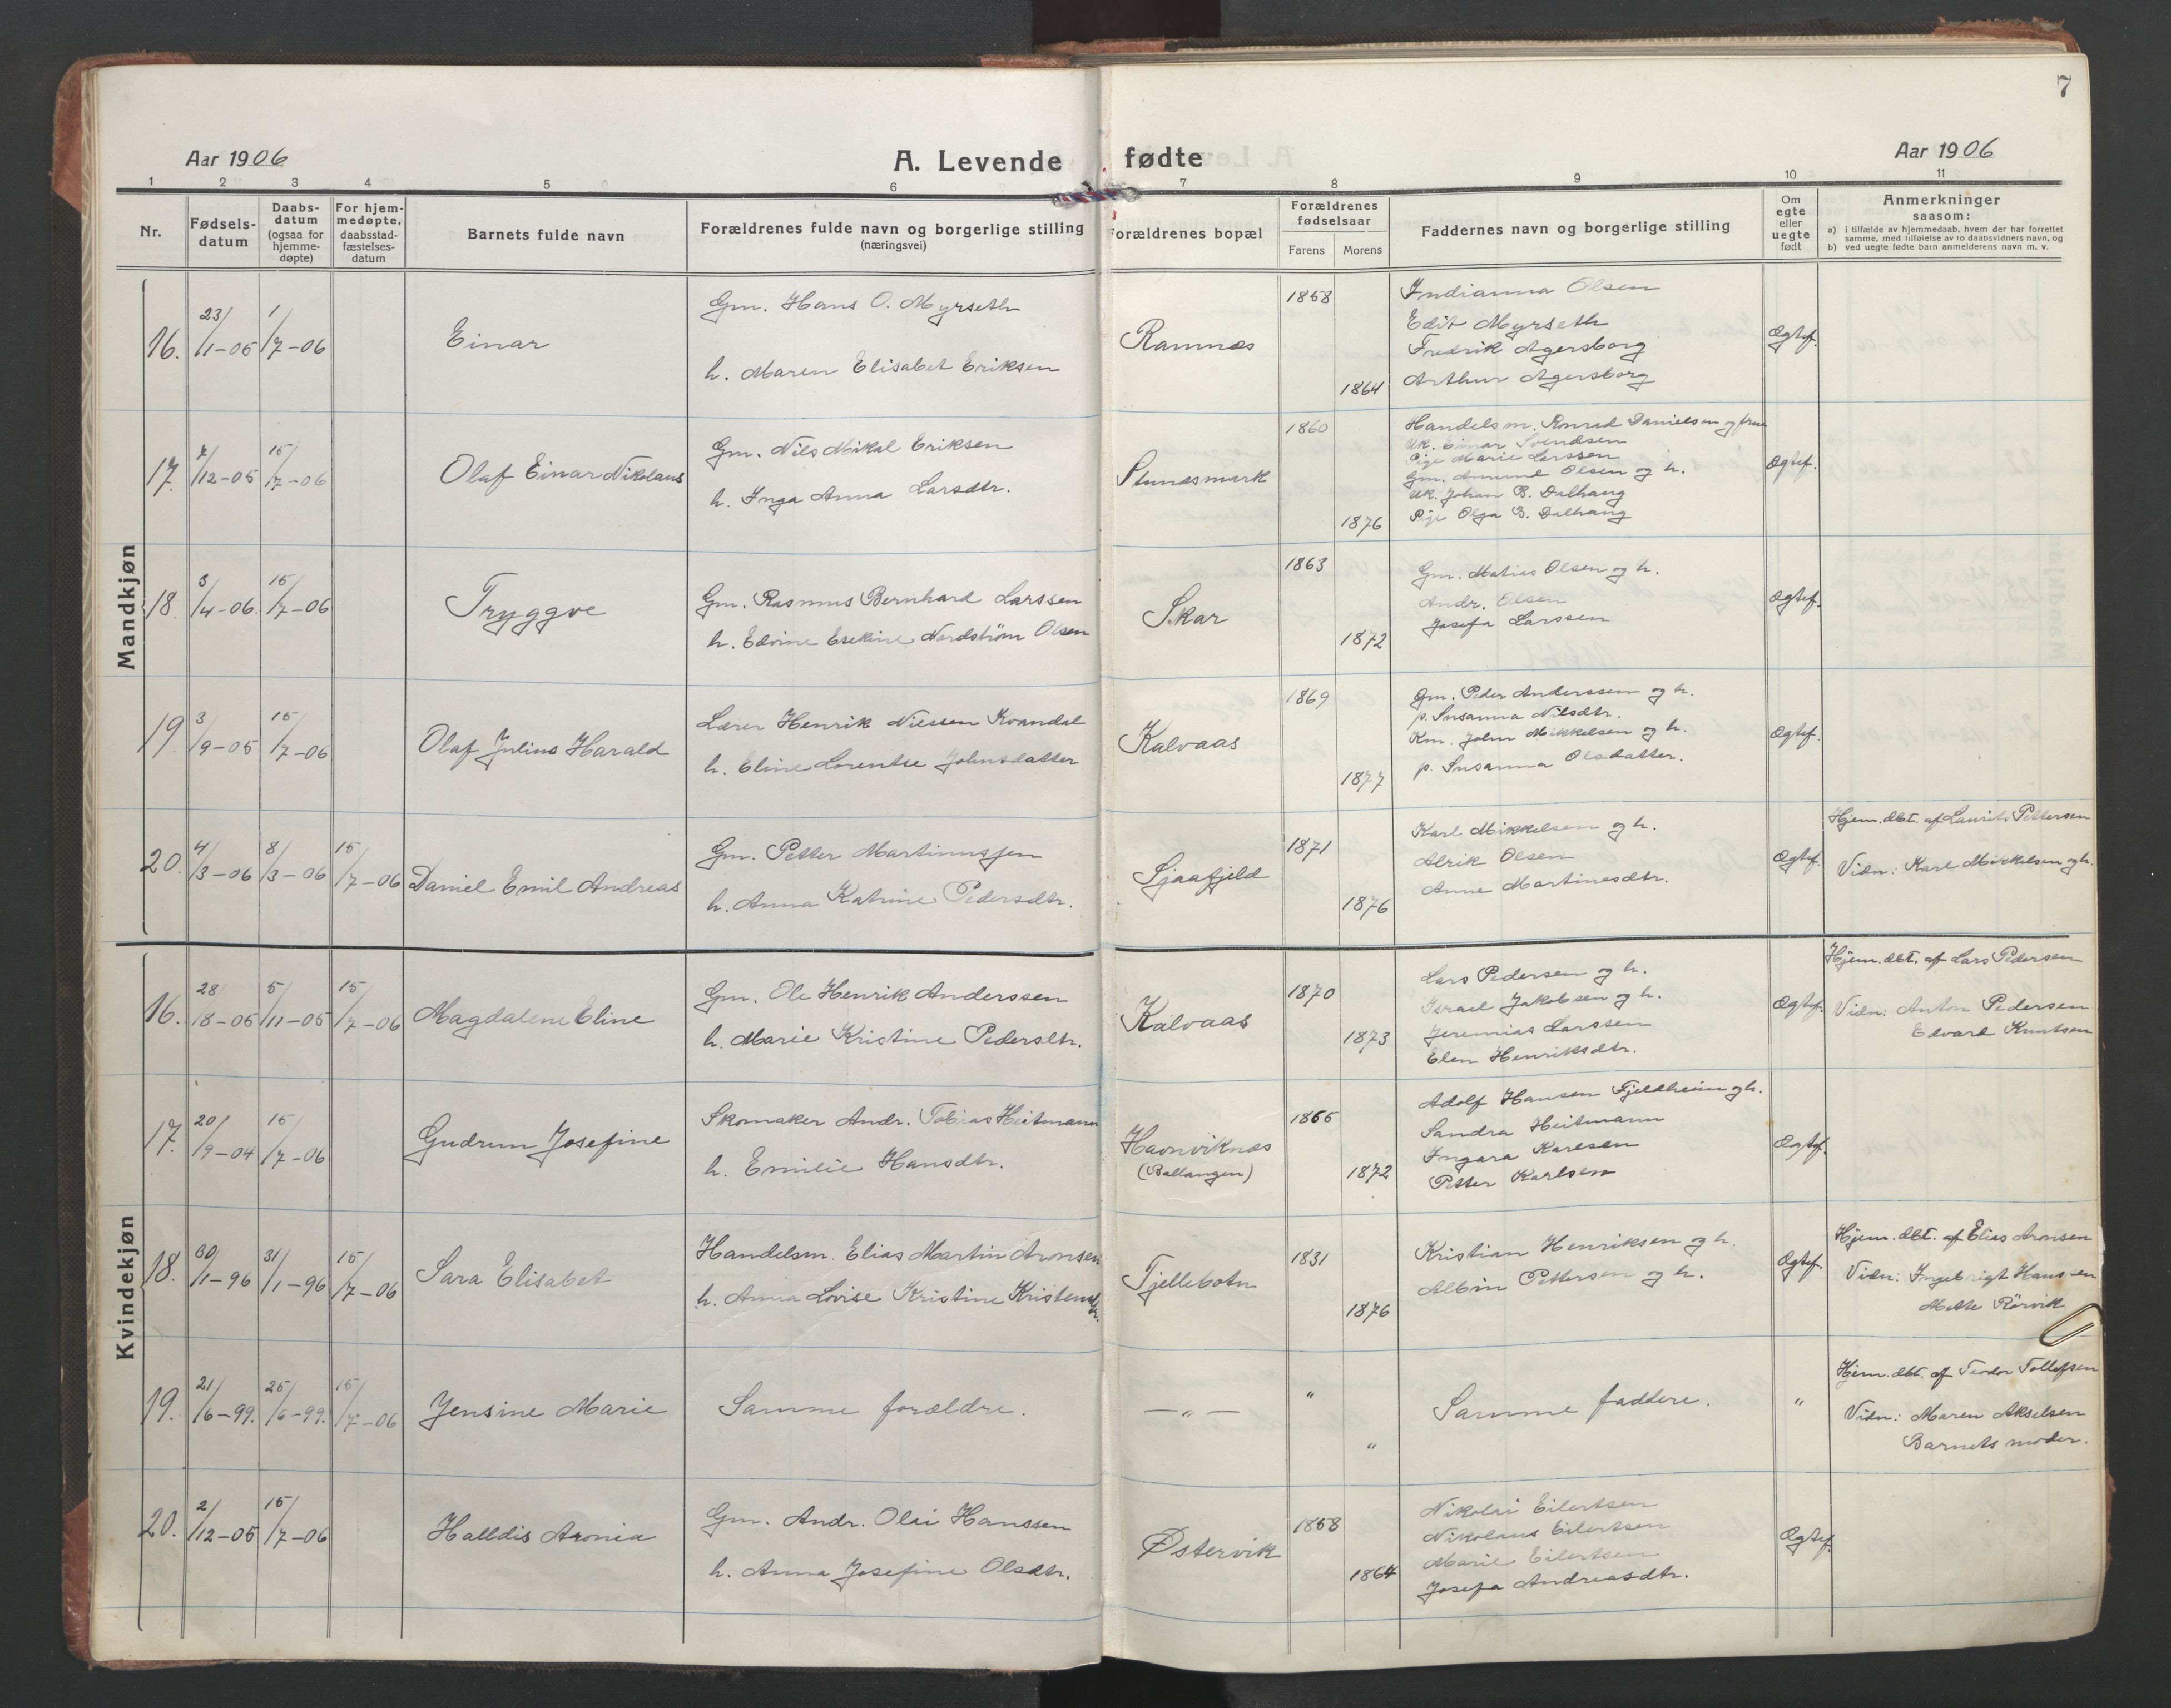 7
Aar 1906
A. Levende fødte
Aar 1906
1 2 3 4 5 6 7 8 9 10 11
Nr.
Fødsels-
datum
Daabs-
datum
(ogsaa for
hjemme-
døpte)
For hjem-
medøpte,
daabsstad-
fæstelses-
datum
Barnets fulde navn
Forældrenes fulde navn og borgerlige stilling
(næringsvei)
Forældrenes bopæl
Forældrenes
fødselsaar
Farens Morens
Faddernes navn og borgerlige stilling
Om
egte
eller
uegte
født
Anmerkninger
saasom:
a) i tilfælde av hjemmedaab, hvem der har forrettet
samme, med tilføielse av to daabsvidners navn, og
b) ved uegte fødte barn anmelderens navn m. v.
Mandkjøn
16. 23/1-05 1/7-06
Einar
Gm. Hans O. Myrseth
h. Maren Elisabet Eriksen
Ramnæs
1858
1864
Indianna Olsen
Edit Myrseth
Fredrik Agersborg
Arthur Agersborg
Ægtef.
17. 7/12-05 15/7-06
Olaf Einar Nikolaus
Gm. Nils Mikal Eriksen
h. Inga Anna Larsdtr.
Stunesmark
1860
1876
Handelsm. Konrad Danielsen og frue
Uk. Einar Svendsen
Pige Marie Larssen
Gm. Amund Olsen og h.
Uk. Johan B. Dalhaug
Pige Olga B. Dalhaug
Ægtef.
18. 3/4-06. 15/7-06
Tryggve
Gm. Rasmus Bernhard Larssen
h. Edvine Esekine Nordstrøm Olsen
Skar
1863
1872
Gm. Matias Olsen og h.
Andr. Olsen
Josefa Larssen
Ægtef.
19. 3/9-05 15/7-06
Olaf Julius Harald
Lærer Henrik Nilssen Kvandal
h. Eline Lorentse Johnsdatter
Kalvaas
1869
1877
Gm. Peder Anderssen og h.
p. Susanna Nilsdtr.
Km. John Mikkelsen og h.
p. Susanna Olsdatter.
Ægtef.
20. 4/3-06 8/3-06 15/7-06
Daniel Emil Andreas
Gm. Petter Martinussen
h. Anna Katrine Pedersdtr.
Sjaafjeld
1871
1876
Karl Mikkelsen og h.
Alrik Olsen
Anne Martinesdtr.
Ægtef.
Hjem.dbt. af Laurits Pettersen
Vidn: Karl Mikkelsen og h.
Kvindekjøn
16. 28/18-05 5/11-05 15/7-06
Magdalene Eline
Gm. Ole Henrik Anderssen
h. Marie Kristine Pedersdtr.
Kalvaas
1870
1873
Lars Pedersen og h.
Israel Jakobsen og h.
Jeremias Larssen
Elen Henriksdtr.
Ægtef.
Hjem.dbt. af Lars Pedersen
Vidn: Anton Pedersen
Edvard Knutsen
17. 20/9-04 15/7-06
Gudrun Josefine
Skomaker Andr. Tobias Heitmann
h. Emilie Hansdtr.
Havnviknes
(Ballangen)
1865
1872
Adolf Hansen Fjeldheim og h.
Sandra Heitmann
Ingara Karlsen
Petter Karlsen
Ægtef.
18. 30/1-96 31/1-96 15/7-06
Sara Elisabet
Handelsm. Elias Martin Aronsen
h. Anna Lovise Kristine Kristensdtr.
Tjellebotn
1831
1876
Kristian Henriksen og h.
Albin Pettersen og h.
Ægtef.
Hjem.dbt. af Elias Aronsen
Vidn: Ingebrigt Hansen
Mette Rørvik
19. 21/6-99. 25/6-99. 15/7-06
Jensine Marie
Samme forældre.
— „ —
"
"
Samme faddere.
"
Hjem.dbt. af Teodor Tollefsen
Vidn: Maren Akselsen
Barnets moder.
20. 2/12-05 15/7-06
Halldis Aronia
Gm. Andr. Olai Hanssen
h. Anna Josefine Olsdtr.
Østervik
1858
1864
Nikolai Eilertsen
Nikolaus Eilertsen
Marie Eilertsen
Josefa Andreasdtr.
Ægtef.